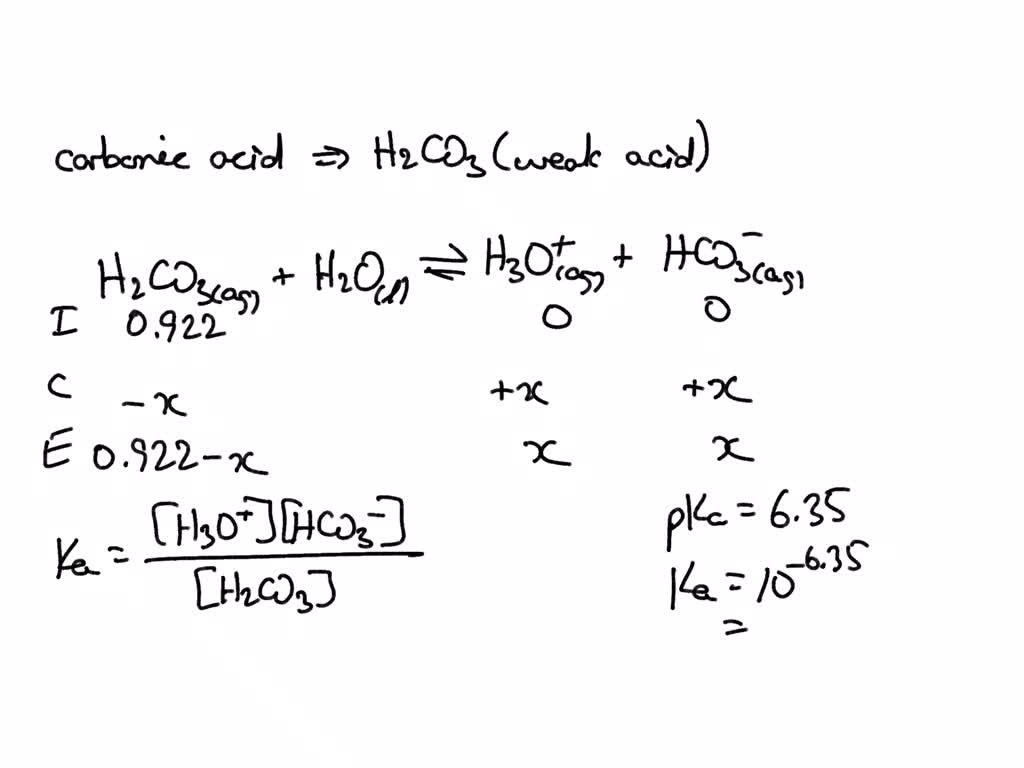 carbonic acid ⇒ H2CO3 (weak acid)
H2CO3(aq) + H2O(l) ⇌ H3O+(aq) + HCO3-(aq)
I 0.922 0 0
C -x +x +x
E 0.922-x x x
Ka = [H3O+][HCO3-] / [H2CO3]
pKa = 6.35
Ka = 10^-6.35
=